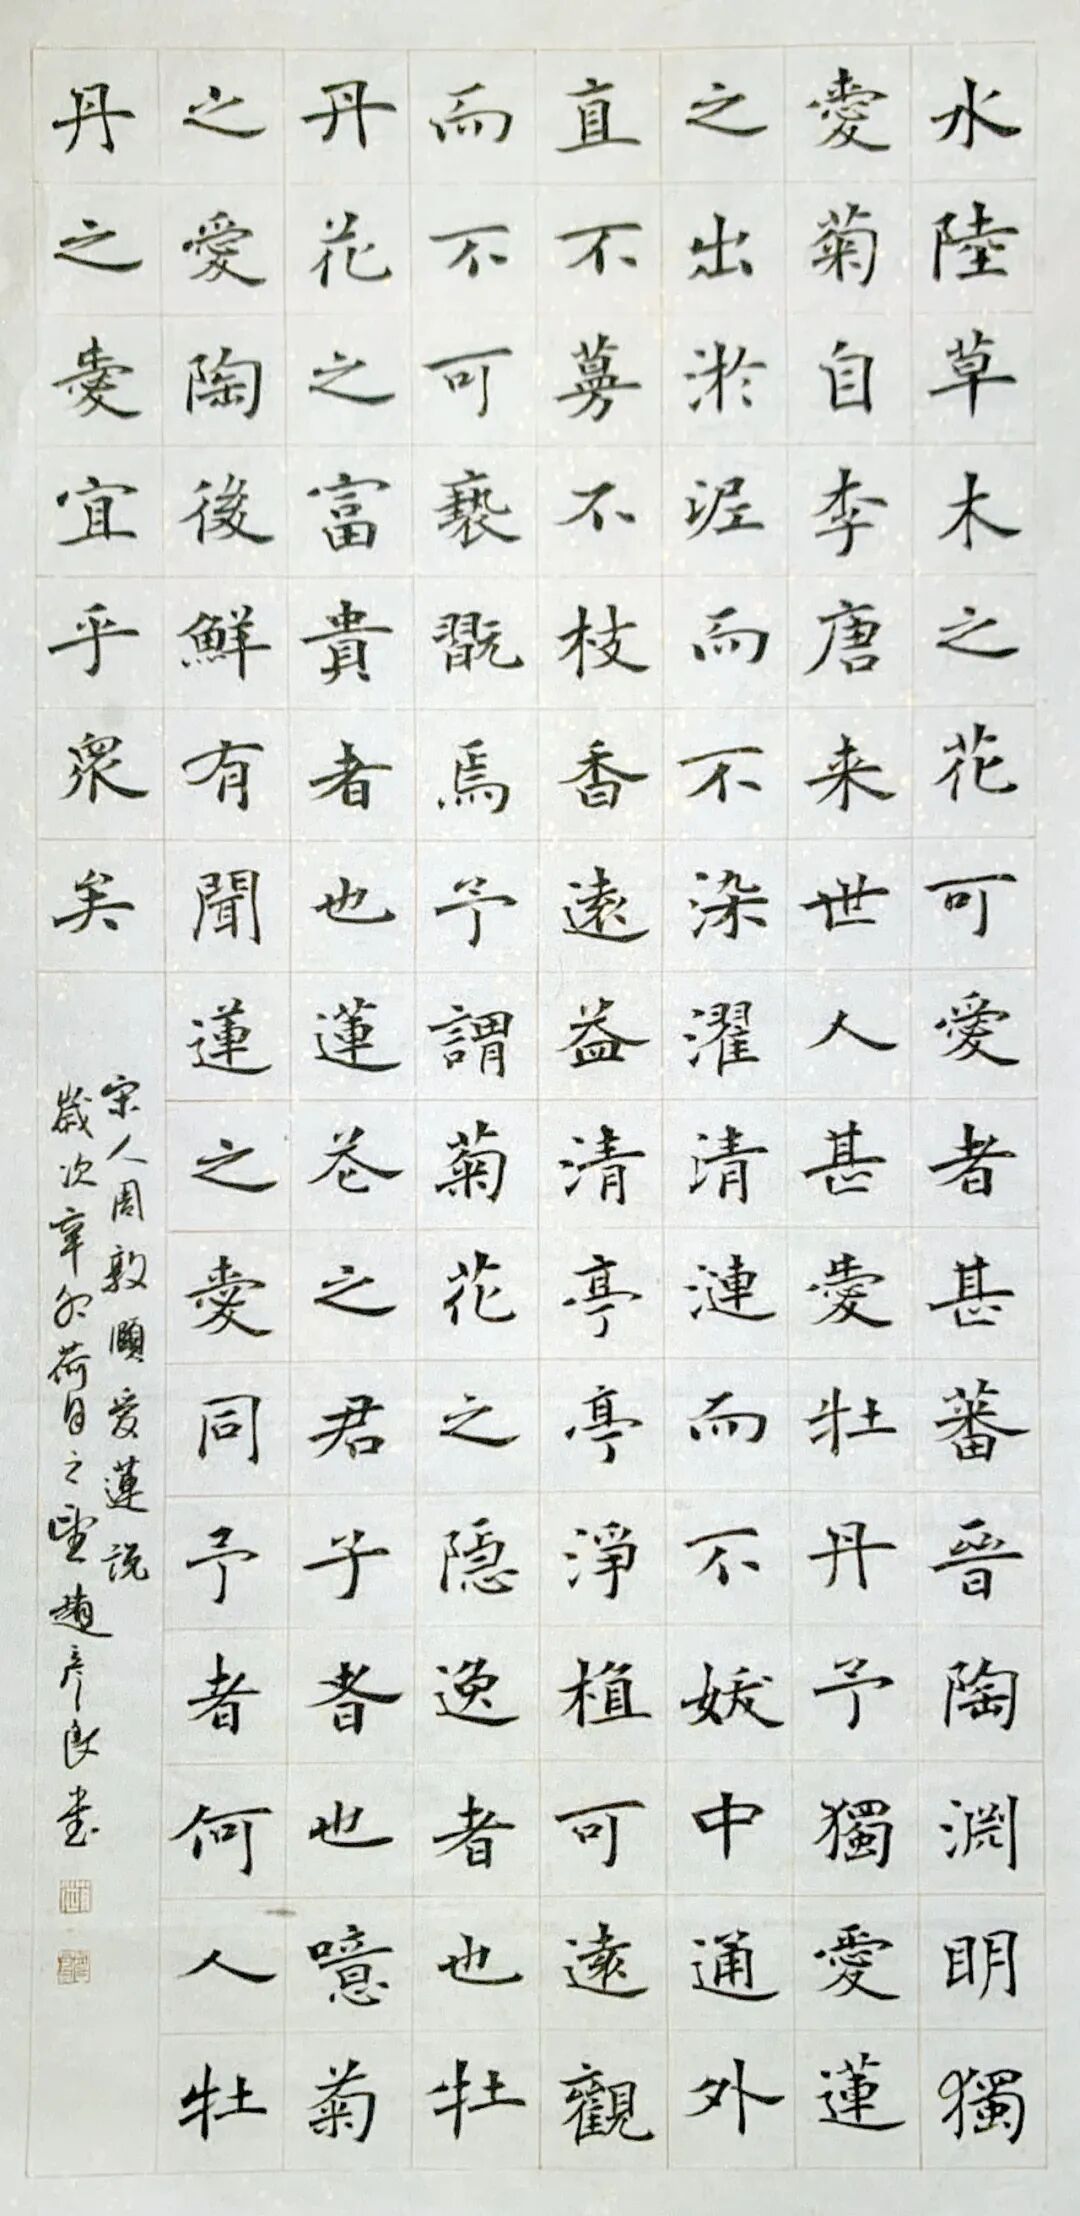 水陸草木之花可愛者甚蕃晉陶淵明獨
愛菊自李唐来世人甚愛牡丹予獨愛蓮
之出淤泥而不染濯清漣而不妖中通外
直不蔓不枝香遠益清亭亭淨植可遠觀
而不可褻翫焉予謂菊花之隱逸者也牡
丹花之富貴者也蓮花之君子者也噫菊
之愛陶後鮮有聞蓮之愛同予者何人牡
丹之愛宜乎眾矣
宋人周敦頤愛蓮說
歲次辛卯荷月之望趙彥良書